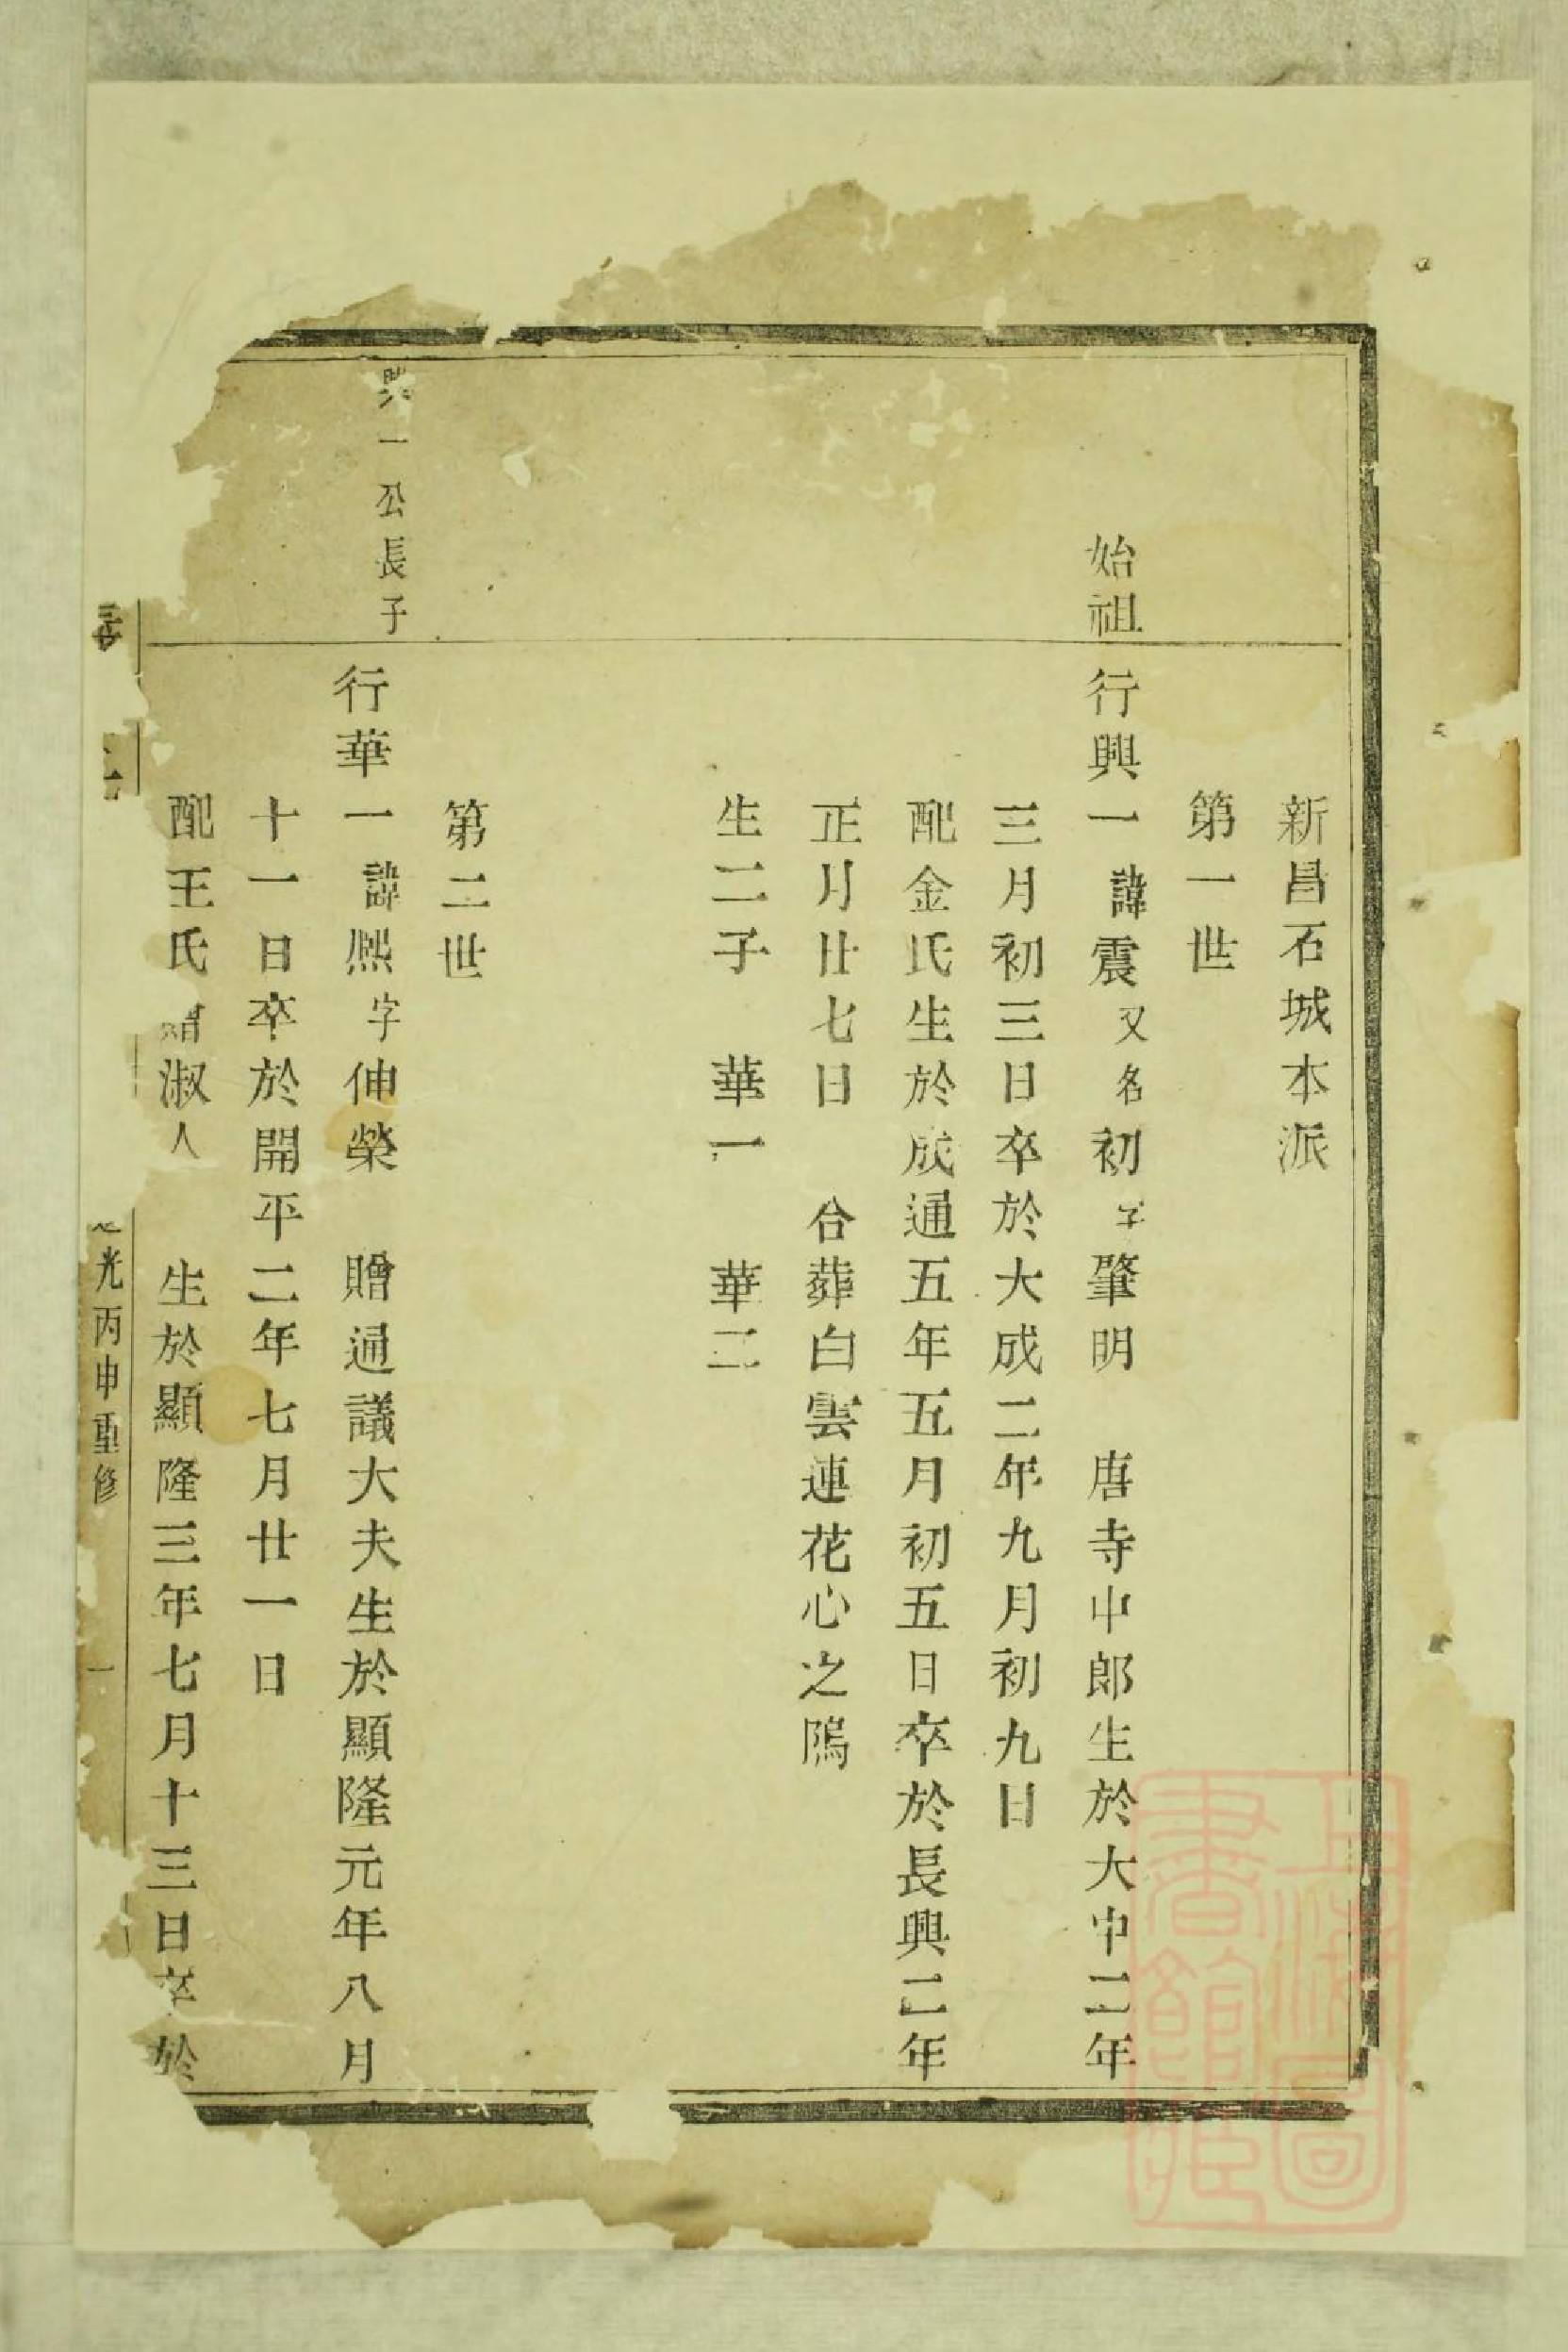 新昌石城本派
第一世
始祖 行興一諱震又名初字肇明 唐寺中郎生於大中二年
三月初三日卒於大成二年九月初九日
配金氏生於咸通五年五月初五日卒於長興二年
正月廿七日 合葬白雲蓮花心之隝
生二子 華一 華二
第二世
興一公長子 行華一諱熈字伸榮 贈通議大夫生於顯隆元年八月
十一日卒於開平二年七月廿一日
配王氏贈淑人 生於顯隆三年七月十三日卒於
光丙申重修 一
上海圖書館藏